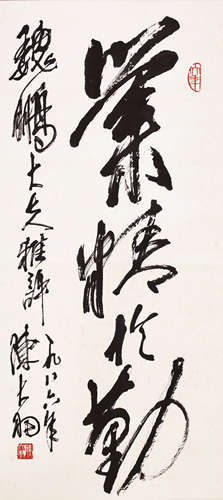 業精於勤
魏鵬大夫雅評
一九八六年
陳大羽